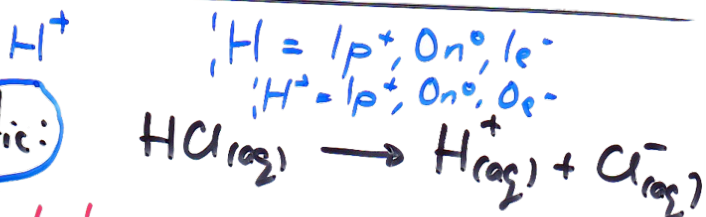 H⁺ ¹₁H = 1p⁺, 0n⁰, 1e⁻
¹₁H⁺ = 1p⁺, 0n⁰, 0e⁻
ic: HCl(aq) → H⁺(aq) + Cl⁻(aq)